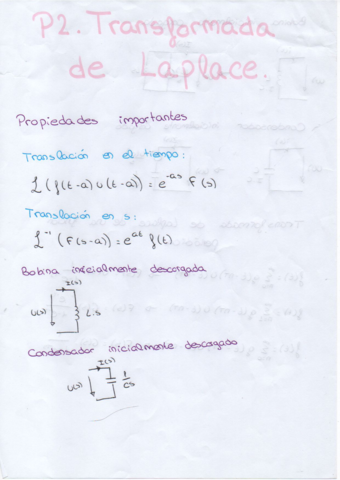 P2. Transformada
de Laplace.
Propiedades importantes
Translación en el tiempo:
ℒ(f(t-a)u(t-a)) = e^{-as} F(s)
Translación en s:
ℒ^{-1}(F(s-a)) = e^{at} f(t)
Bobina inicialmente descargada
I(s)
U(s) L.s
Condensador inicialmente descargado
I(s)
U(s) 1/Cs